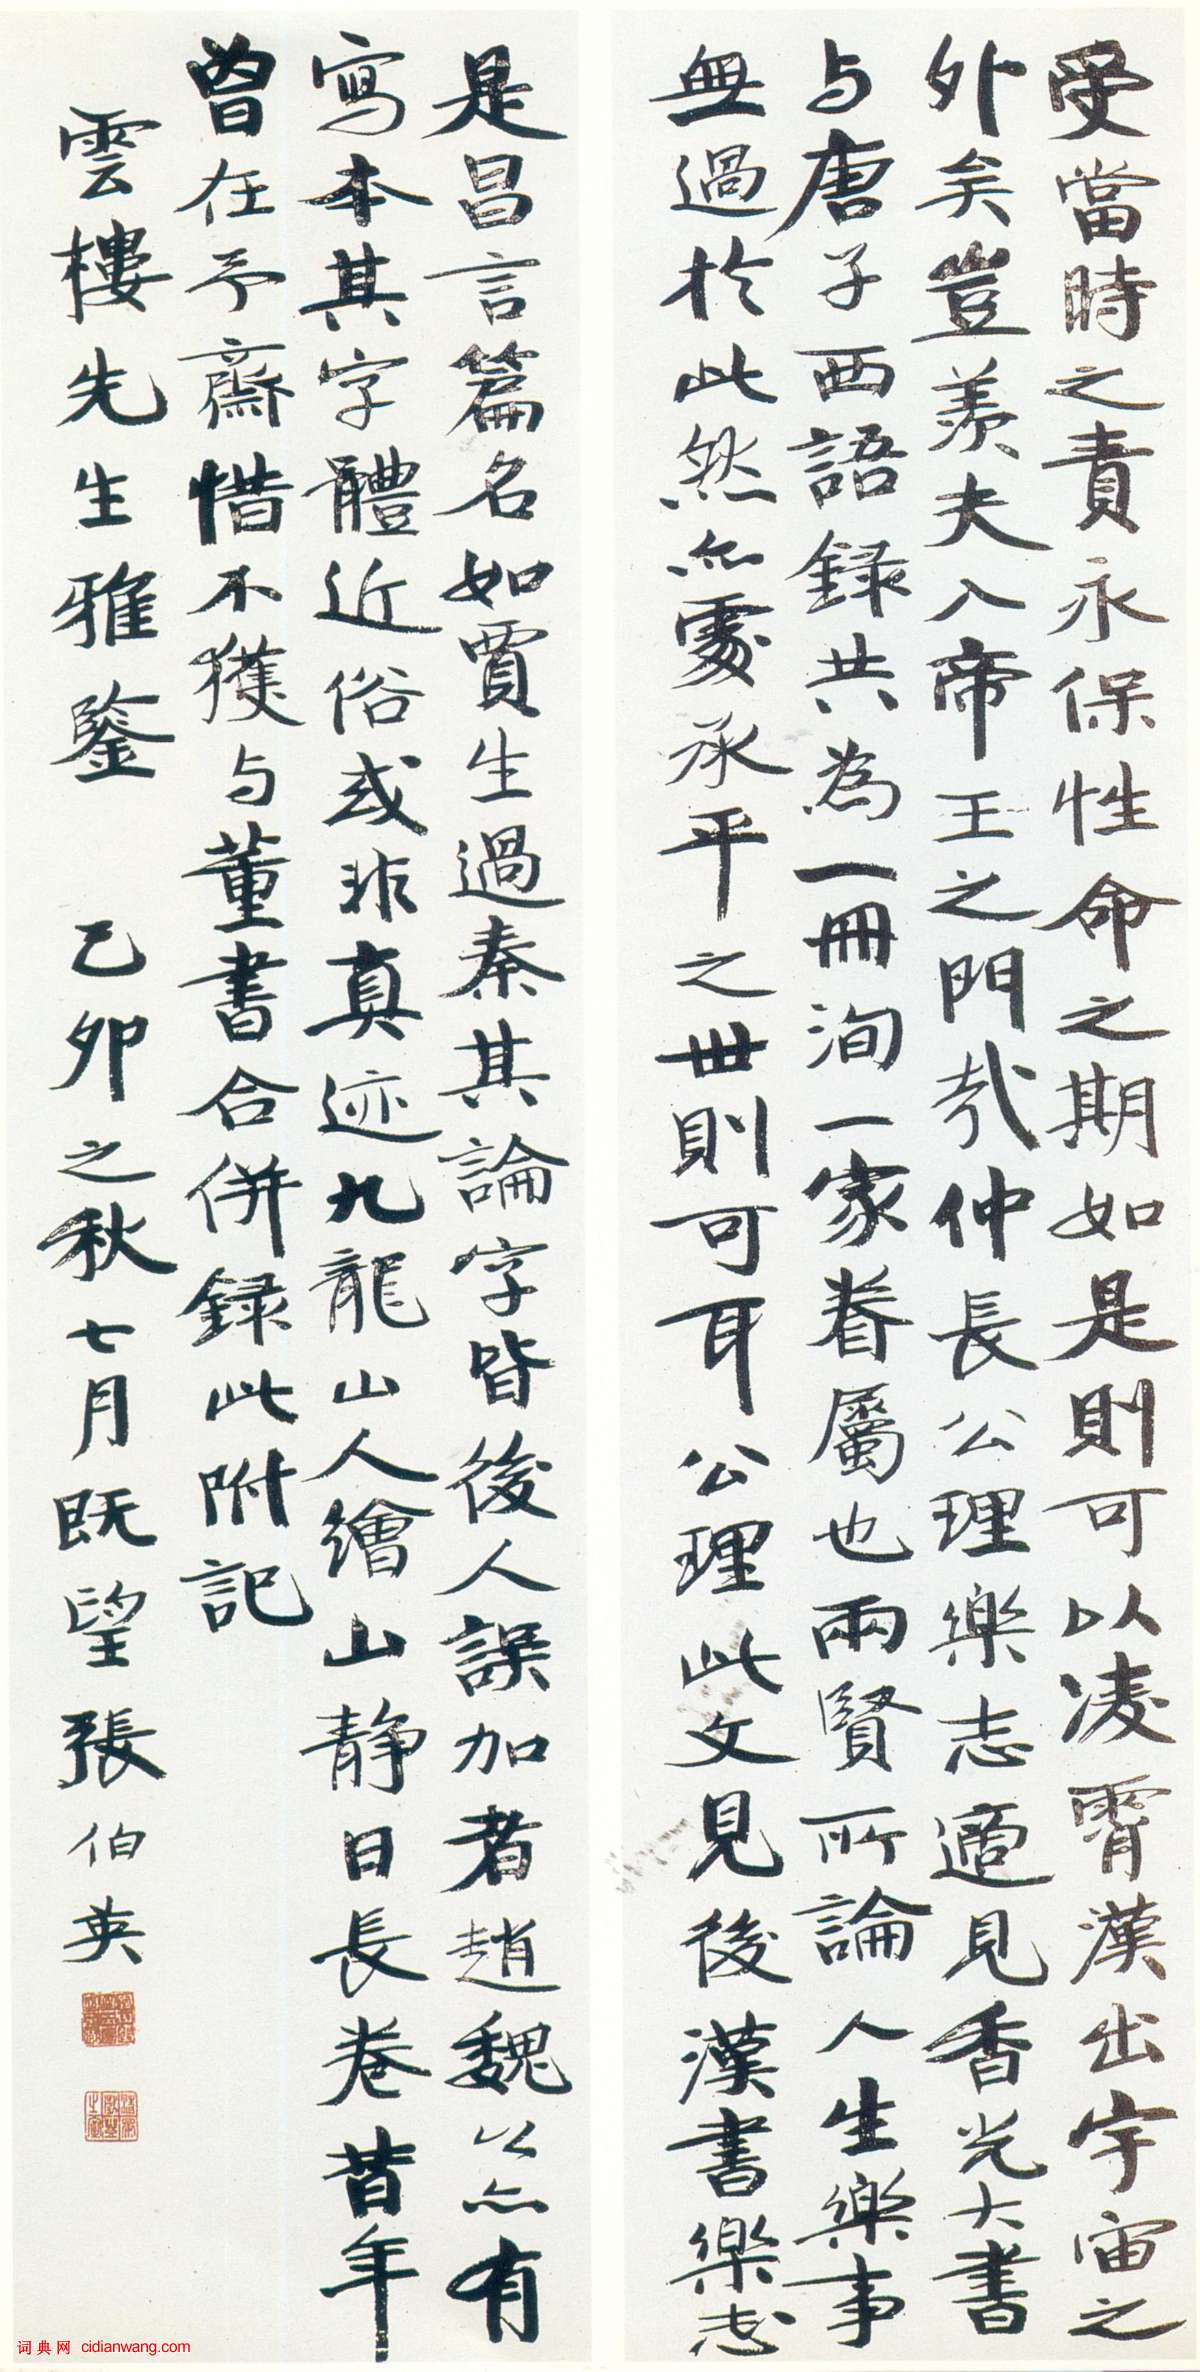 受當時之責永保性命之期如是則可以凌霄漢出宇宙之
外矣豈羨夫入帝王之門哉仲長公理樂志適見香光大書
与唐子西語錄共為一冊洵一家眷屬也兩賢所論人生樂事
無過於此然亦處承平之世則可耳公理此文見後漢書樂志
是昌言篇名如賈生過秦其論字皆後人誤加者趙魏公亦有
寫本其字體近俗或非真迹九龍山人繪山靜日長卷昔年
曾在予齋惜不獲与董書合併録此附記
雲樓先生雅鑒 乙卯之秋七月既望張伯英
词典网 cidianwang.com